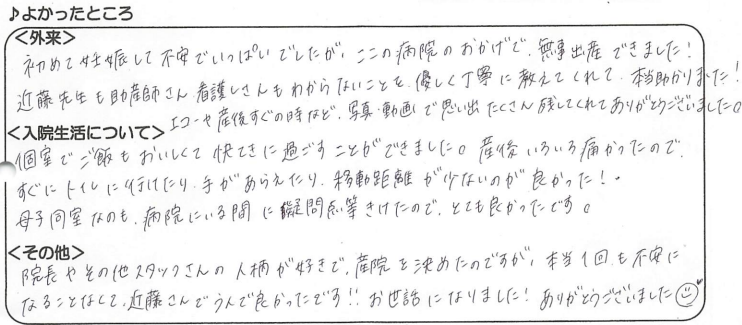 ♪よかったところ
＜外来＞
初めて妊娠して不安でいっぱいでしたが、ここの病院のおかげで、無事出産できました！
近藤先生も助産師さん、看護しさんもわからないことを、優しく丁寧に教えてくれて、本当助かりました！
エコーや産後すぐの時など、写真・動画で思い出たくさん残してくれてありがとうございました。
＜入院生活について＞
個室でご飯もおいしくて快てきに過ごすことができました。産後いろいろ痛かったので、
すぐにトイレに行けたり、手があらえたり、移動距離が少ないのが良かった！。
母子同室なのも、病院にいる間に疑問点等きけたので、とても良かったです。
＜その他＞
院長やその他スタッフさんの人柄が好きで、産院を決めたのですが、本当1回も不安に
なることなくて、近藤さんでうんで良かったです!! お世話になりました！ありがとうございました